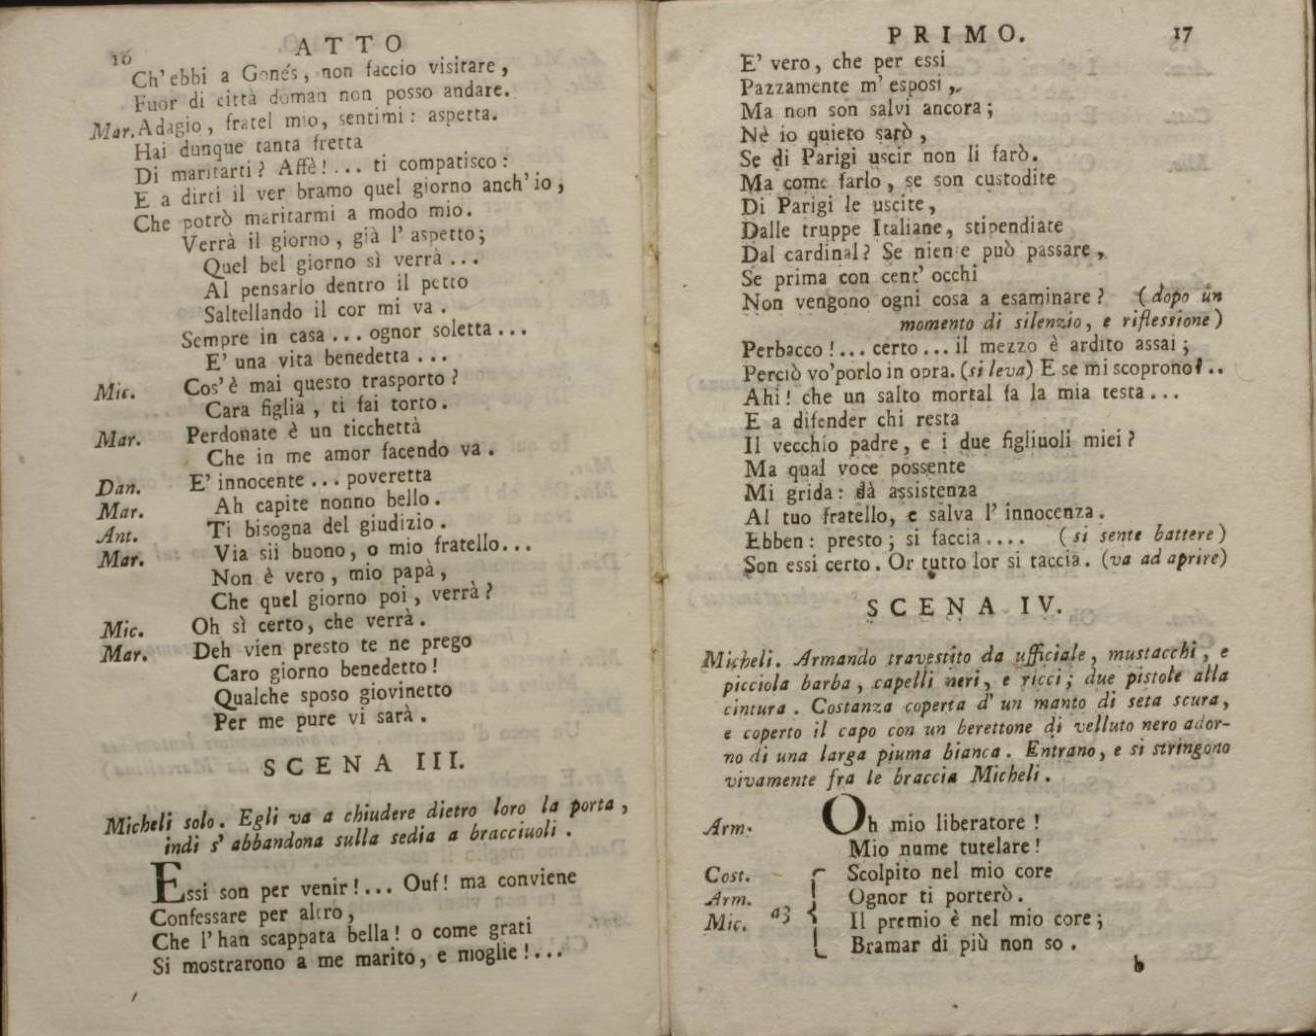 16
ATTO
Ch' ebbi a Gonés, non faccio visitare,
Fuor di città doman non posso andare.
Mar. Adagio, fratel mio, sentimi: aspetta.
Hai dunque tanta fretta
Di maritarti? Affè!... ti compatisco:
E a dirti il ver bramo quel giorno anch' io,
Che potrò maritarmi a modo mio.
Verrà il giorno, già l' aspetto;
Quel bel giorno sì verrà...
Al pensarlo dentro il petto
Saltellando il cor mi va.
Sempre in casa... ognor soletta...
E' una vita benedetta...
Mic. Cos' è mai questo trasporto?
Cara figlia, ti fai torto.
Mar. Perdonate è un ticchettà
Che in me amor facendo va.
Dan. E' innocente... poveretta
Mar. Ah capite nonno bello.
Ant. Ti bisogna del giudizio.
Mar. Via sii buono, o mio fratello...
Non è vero, mio papà,
Che quel giorno poi, verrà?
Mic. Oh sì certo, che verrà.
Mar. Deh vien presto te ne prego
Caro giorno benedetto!
Qualche sposo giovinetto
Per me pure vi sarà.
SCENA III.
Micheli solo. Egli va a chiudere dietro loro la porta,
indi s' abbandona sulla sedia a bracciuoli.
Essi son per venir!... Ouf! ma conviene
Confessare per altro,
Che l' han scappata bella! o come grati
Si mostrarono a me marito, e moglie!...
PRIMO. 17
E' vero, che per essi
Pazzamente m' esposi,
Ma non son salvi ancora;
Nè io quieto sarò,
Se di Parigi uscir non li farò.
Ma come farlo, se son custodite
Di Parigi le uscite,
Dalle truppe Italiane, stipendiate
Dal cardinal? Se nien e può passare,
Se prima con cent' occhi
Non vengono ogni cosa a esaminare? (dopo un
momento di silenzio, e riflessione)
Perbacco!... certo... il mezzo è ardito assai;
Perciò vo' porlo in opra. (si leva) E se mi scoprono!..
Ahi! che un salto mortal fa la mia testa...
E a difender chi resta
Il vecchio padre, e i due figliuoli miei?
Ma qual voce possente
Mi grida: dà assistenza
Al tuo fratello, e salva l' innocenza.
Ebben: presto; si faccia.... (si sente battere)
Son essi certo. Or tutto lor si taccia. (va ad aprire)
SCENA IV.
Micheli. Armando travestito da ufficiale, mustacchi, e
picciola barba, capelli neri, e ricci; due pistole alla
cintura. Costanza coperta d' un manto di seta scura,
e coperto il capo con un berettone di velluto nero ador-
no di una larga piuma bianca. Entrano, e si stringono
vivamente fra le braccia Micheli.
Arm. Oh mio liberatore!
Mio nume tutelare!
Cost. Scolpito nel mio core
Arm. Ognor ti porterò.
Mic. a3 Il premio è nel mio core;
Bramar di più non so.
b